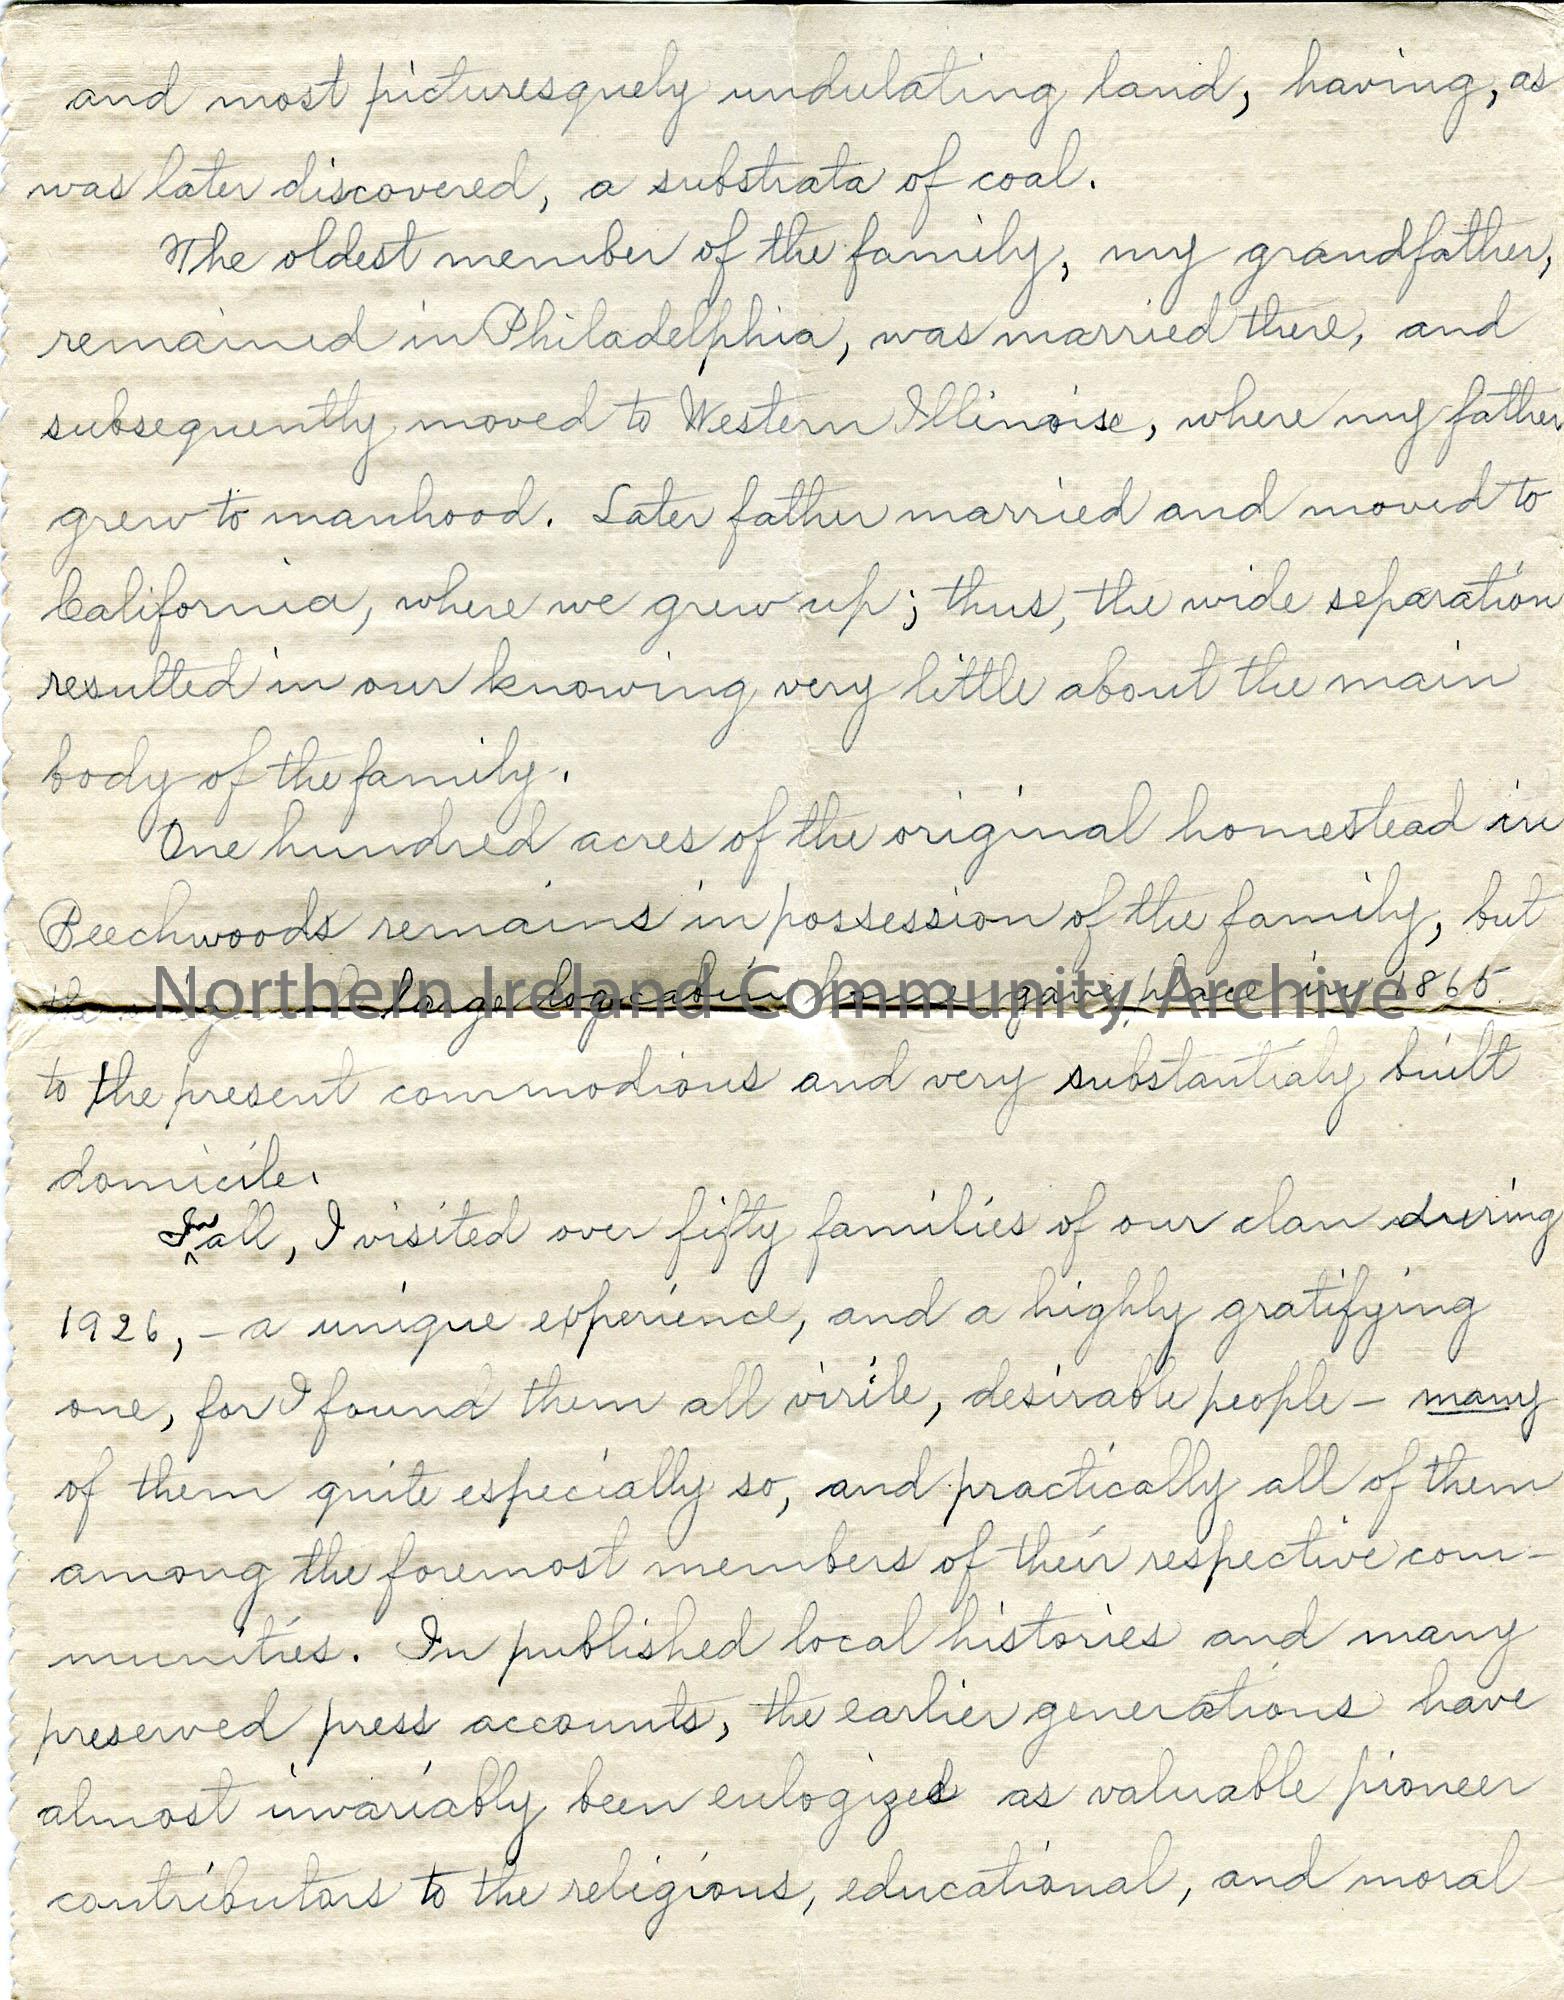 and most picturesquely undulating land, having, as
was later discovered, a substrata of coal.
The oldest member of the family, my grandfather,
remained in Philadelphia, was married there, and
subsequently moved to Western Illinoise, where my father
grew to manhood. Later father married and moved to
California, where we grew up; thus, the wide separation
resulted in our knowing very little about the main
body of the family.
One hundred acres of the original homestead in
Beechwoods remains in possession of the family, but
large log cabin home gave place in 1865
Northern Ireland Community Archive
to the present commodious and very substantialy built
domicile.
In all, I visited over fifty families of our clan during
1926, - a unique experience, and a highly gratifying
one, for I found them all virile, desirable people - many
of them quite especially so, and practically all of them
among the foremost members of their respective com-
munities. In published local histories and many
preserved press accounts, the earlier generations have
almost invariably been eulogized as valuable pioneer
contributors to the religious, educational, and moral